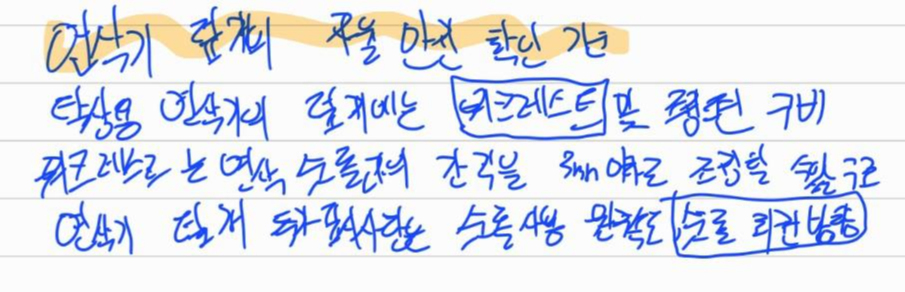 연삭기 덮개의 자율 안전 확인 기준
탁상용 연삭기의 덮개에는 워크레스트 및 조정편 구비
워크레스트는 연삭 숫돌과의 간격을 3mm 이하로 조정할 수 있는 구조
연삭기 덮개 추가 표시사항은 숫돌사용 원주속도 숫돌 회전방향